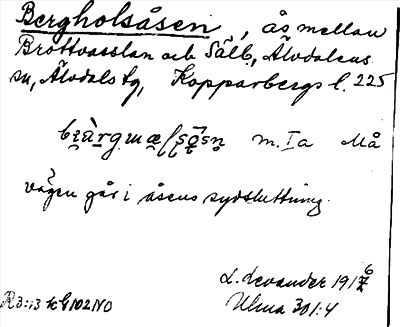 Bergholsåsen, ås mellan
Brottvasslan och Sälb., Älvdalens
sn, Älvdals tg, Kopparbergs l. 225
m. Ia Må
vägen går i åsens sydsluttning.
L. Levander 1916
Ulma 301:4
R3:13